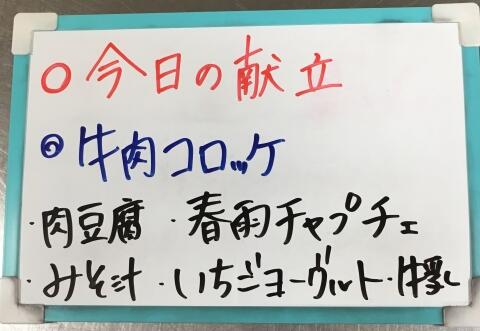 ○今日の献立
◎牛肉コロッケ
・肉豆腐 ・春雨チャプチェ
・みそ汁 ・いちごヨーグルト・牛乳